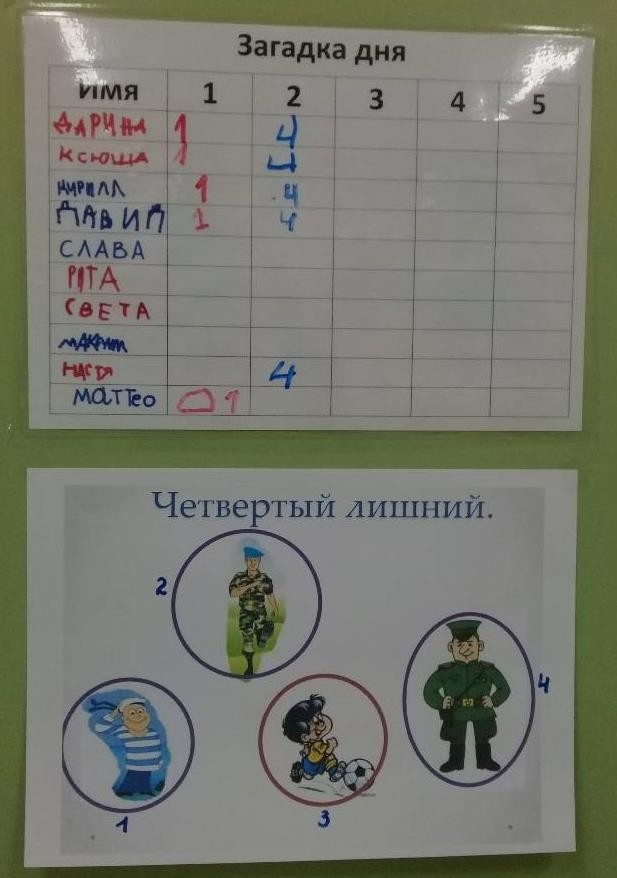 Загадка дня
Имя 1 2 3 4 5
ДАРИНА 1 4
КСЮША 1 4
КИРИЛЛ 1 4
ДАВИД 1 4
СЛАВА
РИТА
СВЕТА
МАКСИМ
НАСТЯ 4
МАТТЕО 1
Четвертый лишний.
2
4
1
3